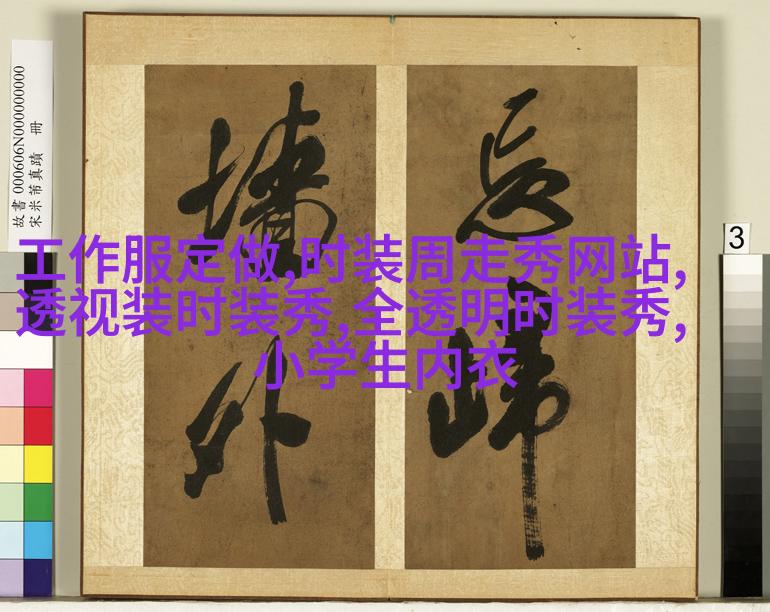 故書 000606N000000000
宋米芾真蹟 冊
忘歸
墻外
工作服定做,时装周走秀网站,
透视装时装秀,全透明时装秀,
小学生内衣
3